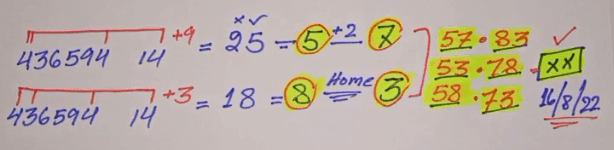 436594 14 +9 = 25 - 5 +2 7
436594 14 +3 = 18 = 8 Home 3
57 • 83
53 • 78 - XX
58 • 73
16/8/22